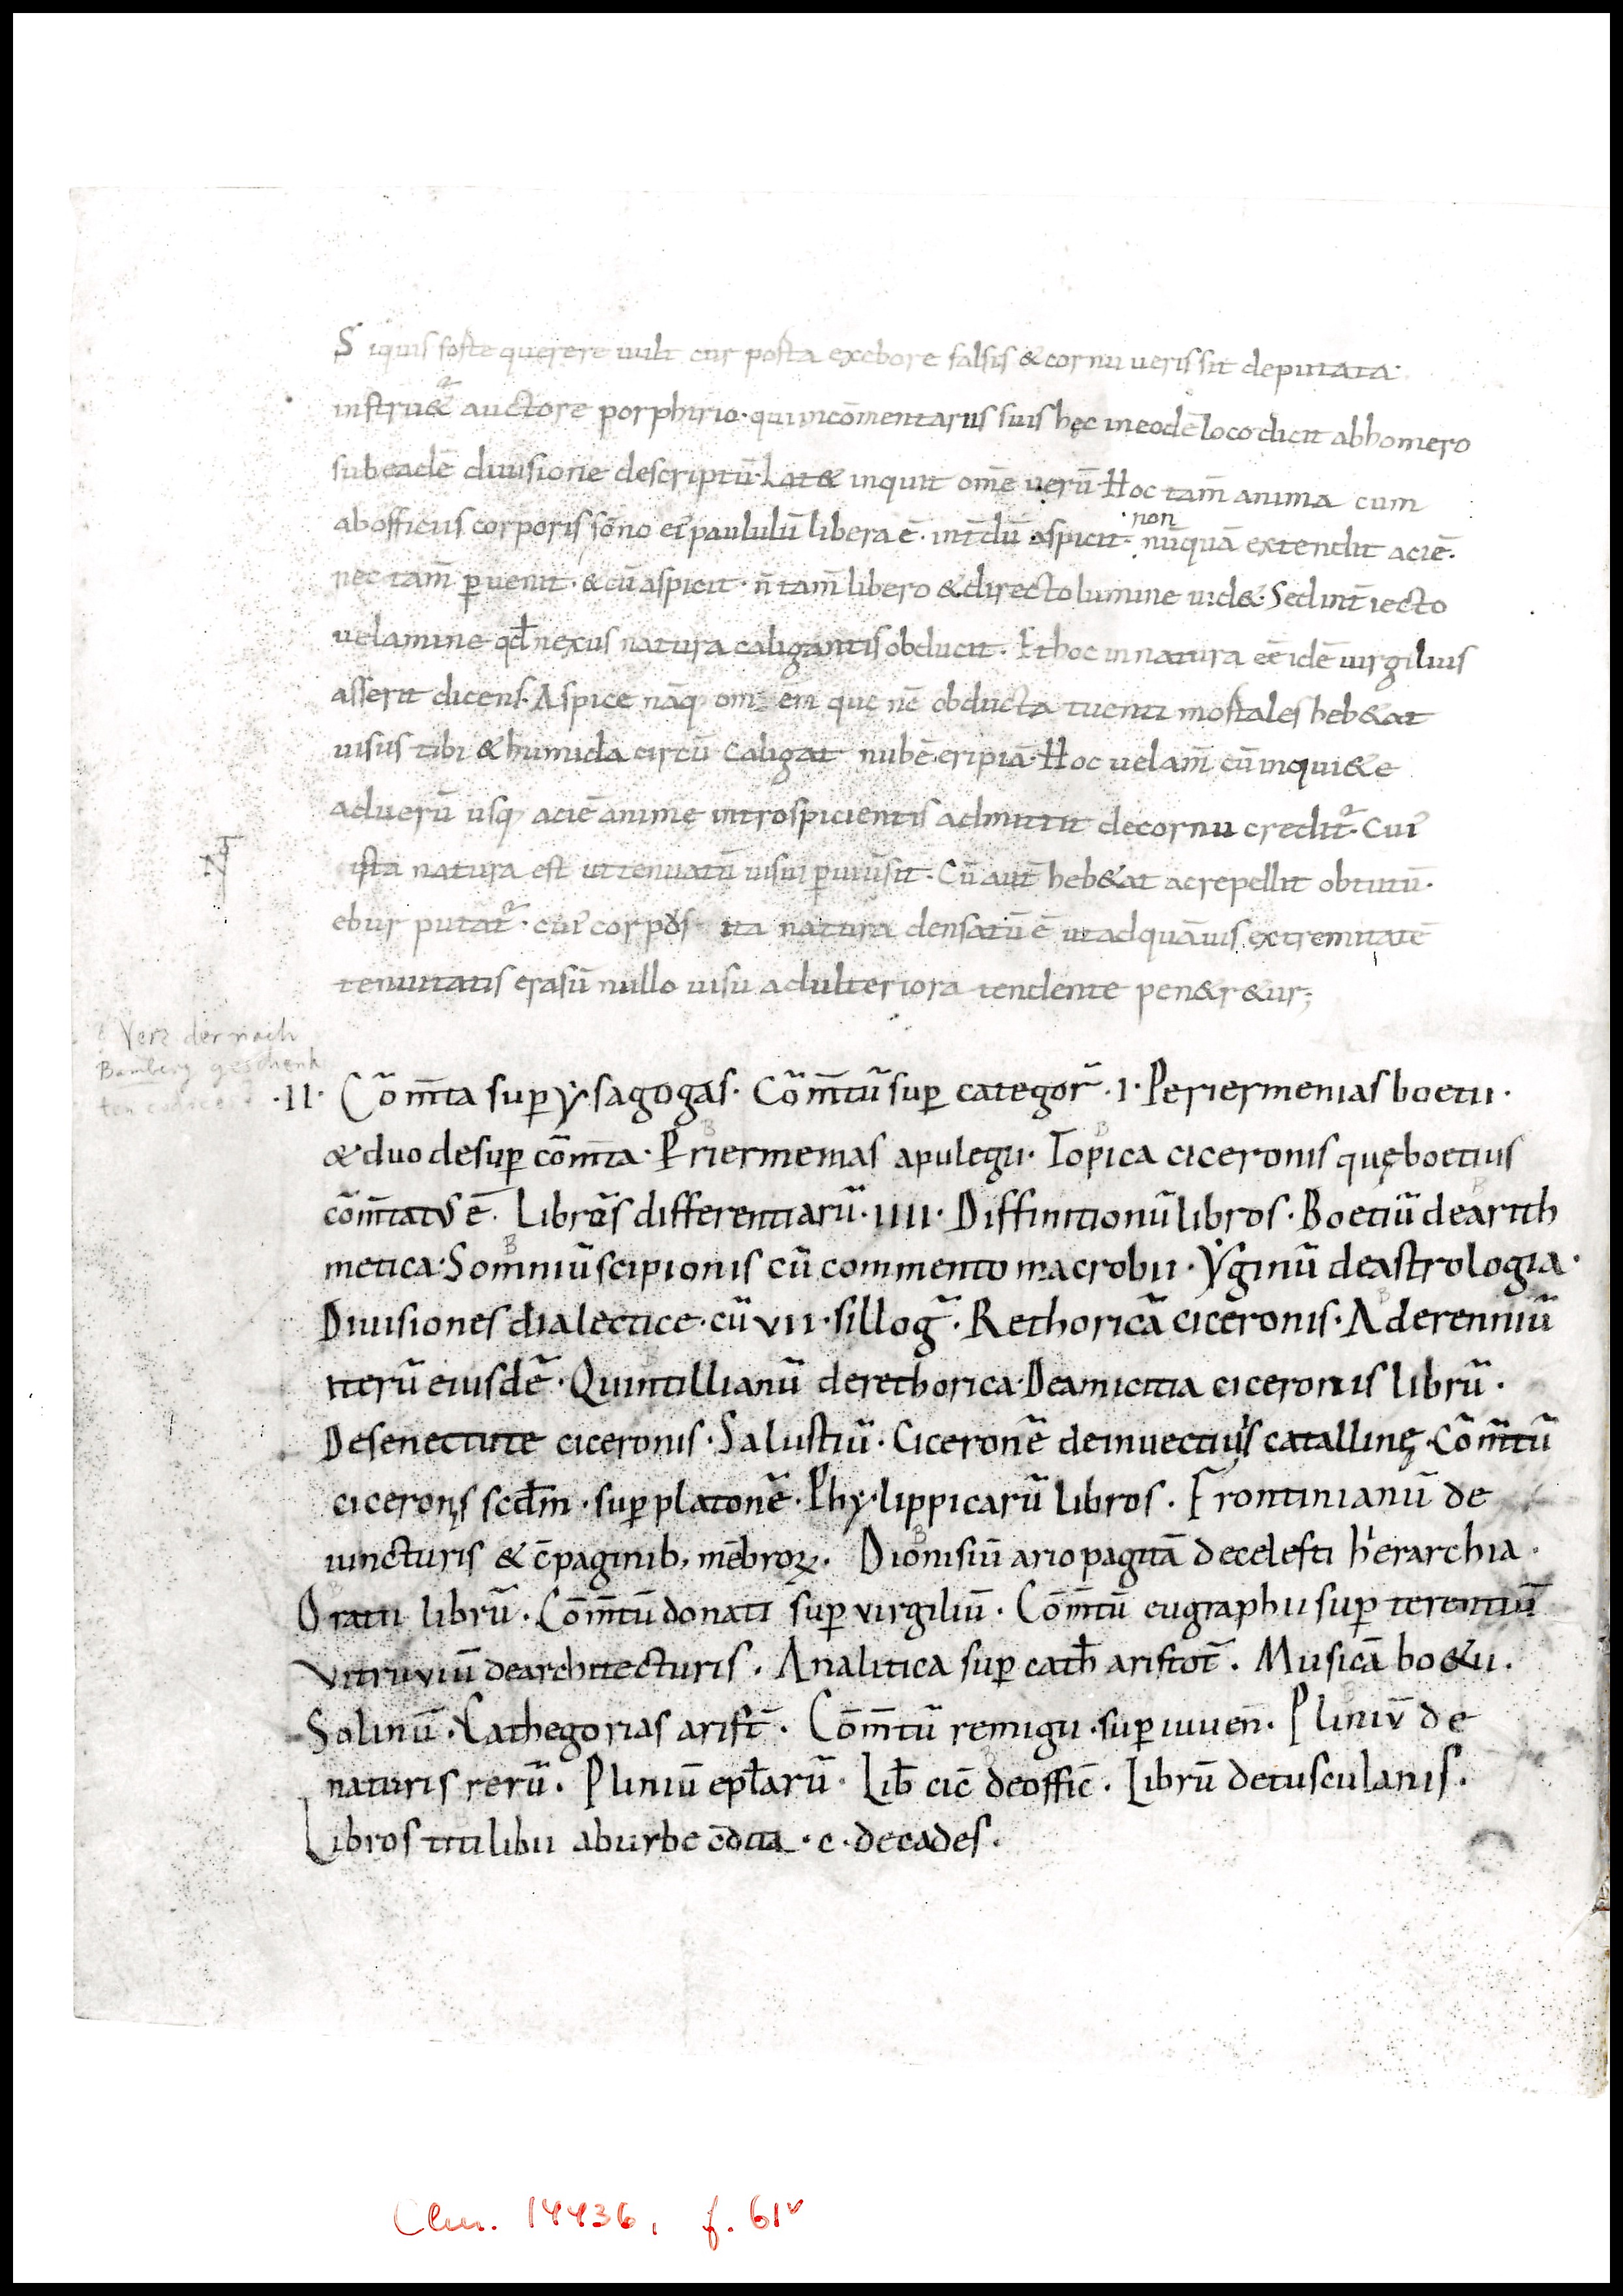 Siquis forte querere uult cur porta exebore falsis & cornu ueris sit deputata·
instru&ᷣ auctore porphirio· qui incōmentariis suis hęc ineodē loco dicit abhomero
subeadē diuisione descriptū· Lat& inquit om̄e uerū· Hoc tam̄ anima cum
abofficiis corporis sōno ei᷒ paululū libera ē· int̄dū aspicit·
·non
nūquā extendit aciē·
nec tam̄ ꝑuenit· & cū aspicit· n̄ tam̄ libero & directo lumine uid&· Sed int̄iecto
uelamine qd̄ nexus natura caligantis obducit· Et hoc innatura eē idē uirgilius
asserit dicens· Aspice nāq; om̄em que nc̄ obducta tuenti mortales heb&at
uisus tibi & humida circū caligat nubē eripiā· Hoc uelam̄ cū inqui&e
aduerū usq; aciē animę introspicientis admittit decornu creditᷣ· Cui᷒
ista natura est ut tenuatū uisui ꝑuiūsit· Cū aut̄ heb&at acrepellit obtutū·
ebur putatᷣ· cui᷒ corp᷒ ita natura densatū ē utadquāuis extremitatē
tenuitatis erasū nullo uisu adulteriora tendente pen&r&ur;
Verz der nach
Bamberg geschenk
ten codices
·II· Cōm̄ta suꝑ ẏsagogas· Cōm̄tū suꝑ categor̄· I· Periermenias boetii·
& duo desuꝑ cōm̄ta· Priermenias apulegii· Topica ciceronis quęboetius
cōm̄tatus ē· Librūs differentiarū· IIII· Diffinitionū libros· Boetiū dearith
metica· Somniū scipionis cū commento macrobii· Ẏginū deastrologia·
Diuisiones dialectice· cū VII· silloḡ· Rethoricā ciceronis· Aderenniū
iterū eiusdē· Quintillianū derethorica· Deamicitia ciceronis librū·
Desenectute ciceronis· Salustiū· Ciceronē deinuectiuis catallinę· Cōm̄tū
ciceronis scd̄m· suꝑ platonē· Phy·lippicarū libros· Frontinianū de
iuncturis & c̄paginib; mēbroꝝ· Dionisiū ariopagitā decelesti hierarchia·
Oratii librū· Cōm̄tū donati suꝑ virgiliū· Cōm̄tū eugraphii suꝑ terentiū
Vitruuiū dearchitecturis· Analitica suꝑ cath̄ aristot̄· Musicā bo&ii·
Solinū· Cathegorias arist̄· Cōm̄tū remigii· suꝑ iuuen̄· Pliniū de
naturis rerū· Pliniū epl̄arū· Lib̄ cic̄ deoffic̄· Librū detusculanis·
Libros titi libii aburbe c̄dita· c· decades·
Clm. 14436, f. 61ᵛ